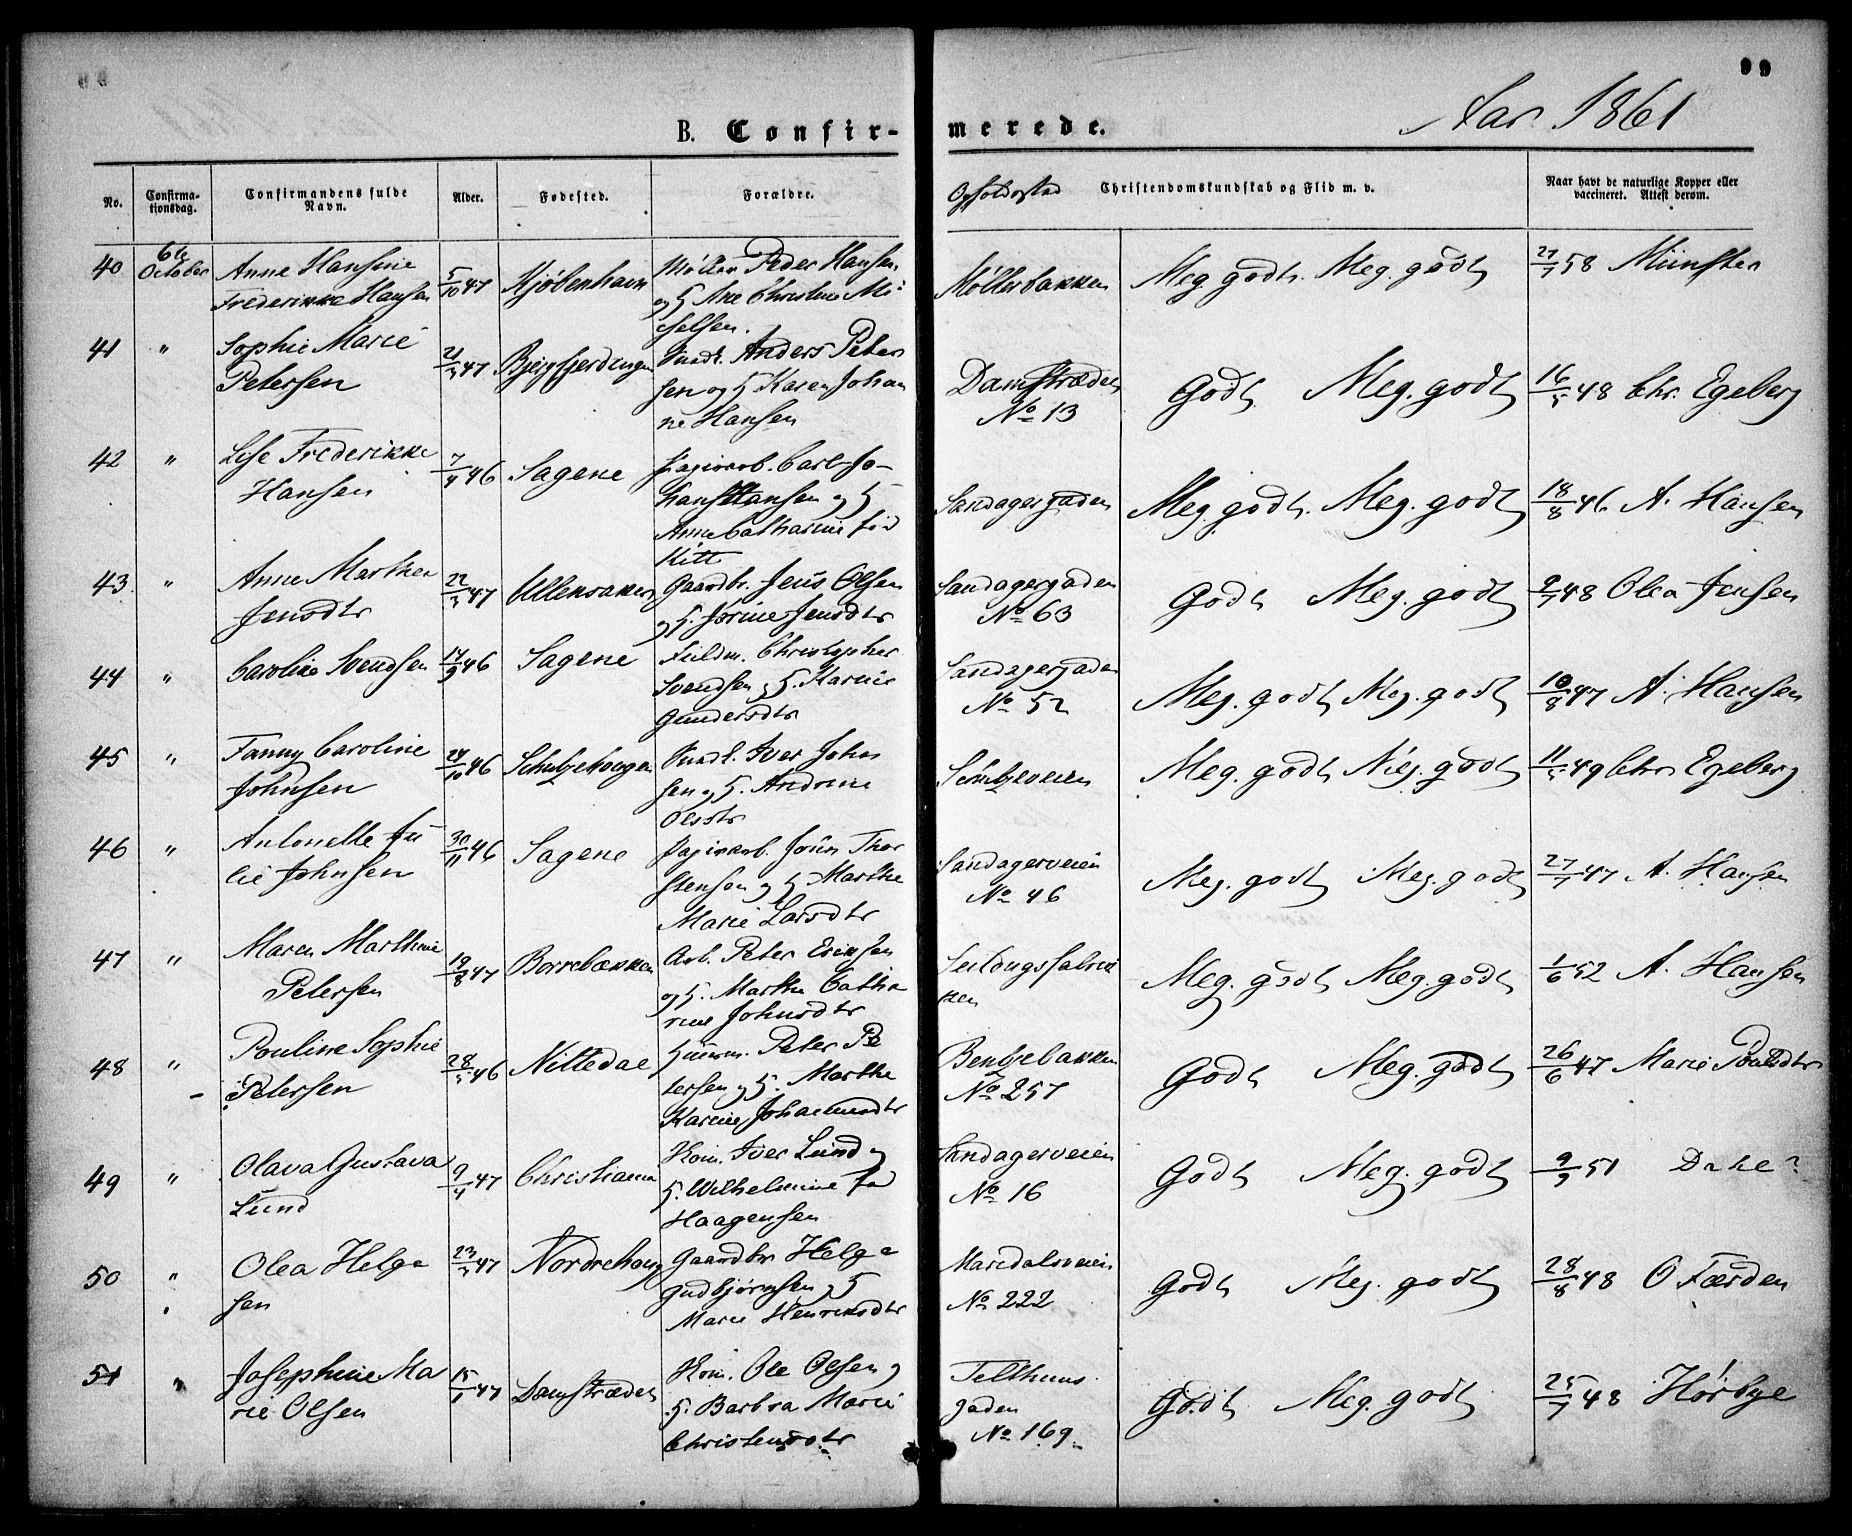 99
Aar 1861
B. Confir-merede.
No. Confirma-tionsdag. Confirmandens fulde Navn. Alder. Fødested. Forældre. Opholdsstad Christendomskundskab og Flid m. v. Naar havt de naturlige Kopper eller vaccineret. Attest derom.
40 6te October Anne Hansine 5/10 47 Kjøbenhavn Møller Peder Hansen Møllerbakken Meg godt. Meg. godt 27/7 58 Münster
Frederikke Hansen og H. Ane Christine Mi
chelsen.
41 " Sophie Marie 21/3 47 Bjergfjerdingen Snedk. Anders Peter Damstrædet Godt Meg. godt 16/5 48 Chr. Egeberg
Petersen sen og H. Karen Johan No 13
ne Hansen
42 " Lise Frederikke 7/4 46 Sagene Papirarb. Carl Jo- Sandagergaden Meg. godt. Meg. godt 18/8 46 A. Hansen
Hansen han Hansen og H
Anne Catharine fød
Kitt
43. " Anne Marthea 22/3 47 Ullensaker Gaardbr. Jens Olsen Sandagergaden Godt Meg. godt 9/7 48 Olea Jensen
Jensdtr og H. Jorine Jensdtr No 63
44 " Caroline Svendsen 14/9 46 Sagene Fuldm. Christopher Sandagergaden Meg. godt Meg. godt 10/8 47 A. Hansen
Svendsen og H. Karine No 52
Gundersdtr
45 " Fanny Caroline 24/10 46 Schultzehougen Snedk. Iver John Meg. godt Meg. godt 11/5 49 Chr Egeberg
Johnsen sen og H. Andrine
Olsdtr
46 " Antonette Ju- 30/11 46 Sagene Papirarb. John Thor Sandagerveien Meg. godt Meg. godt 27/7 47 A. Hansen
lie Johnsen stensen og H Marthe No 46
Marie Larsdtr
47 " Maren Marthine 19/8 47 Borrebækken Arb. Peter Eriksen Seildugsfabrik Meg. godt Meg. godt 1/6 52 A. Hansen
Petersen og H. Marthe Catha ken
rine Johnsdtr
48 " Pauline Sophie 28/3 46 Nittedal Huusm. Peter Pe Bentzebakken Godt Meg. godt 26/6 47 Marie Poulsdtr
Petersen tersen og H. Marthe No 257
Karine Johannesdtr
49 " Olava Gustava 9/4 47 Christiania Kom. Iver Lund og Sandagerveien Godt Meg. godt 9/9 51
Lund H. Wilhelmine fød No 16
Haagensen
50 " Olea Helge 23/3 47 Nordrehoug Gaardbr Helge Maridalsveien Godt Meg. godt 28/8 48 O Færden
sen Gudbjørnsen og H No 222
Marie Henriksdtr
51 " Josephine Ma 15/1 47 Damstrædet Kom. Ole Olsen og Telthuus Godt Meg. godt 25/7 48 Hørbye
rie Olsen H. Barbra Marie gaden
Christensdtr No 169